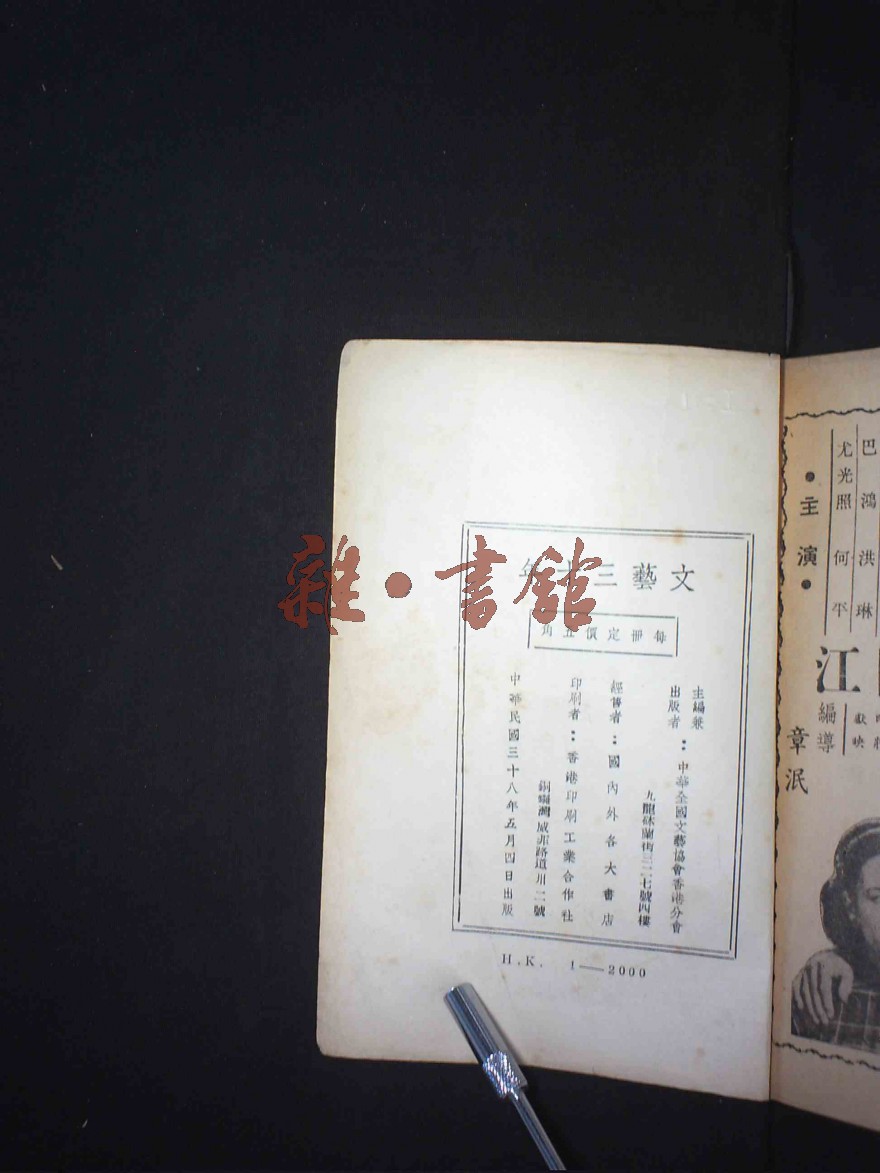 文藝三十年
每冊定價五角
主編兼
出版者：中華全國文藝協會香港分會
九龍砵蘭街三二七號四樓
經售者：國內外各大書店
印刷者：香港印刷工業合作社
銅鑼灣威非路道卅二號
中華民國三十八年五月四日出版
H.K. 1—2000
雜·書館
巴鴻 洪琳
尤光照 何平
·主演·
江
編導
章泯